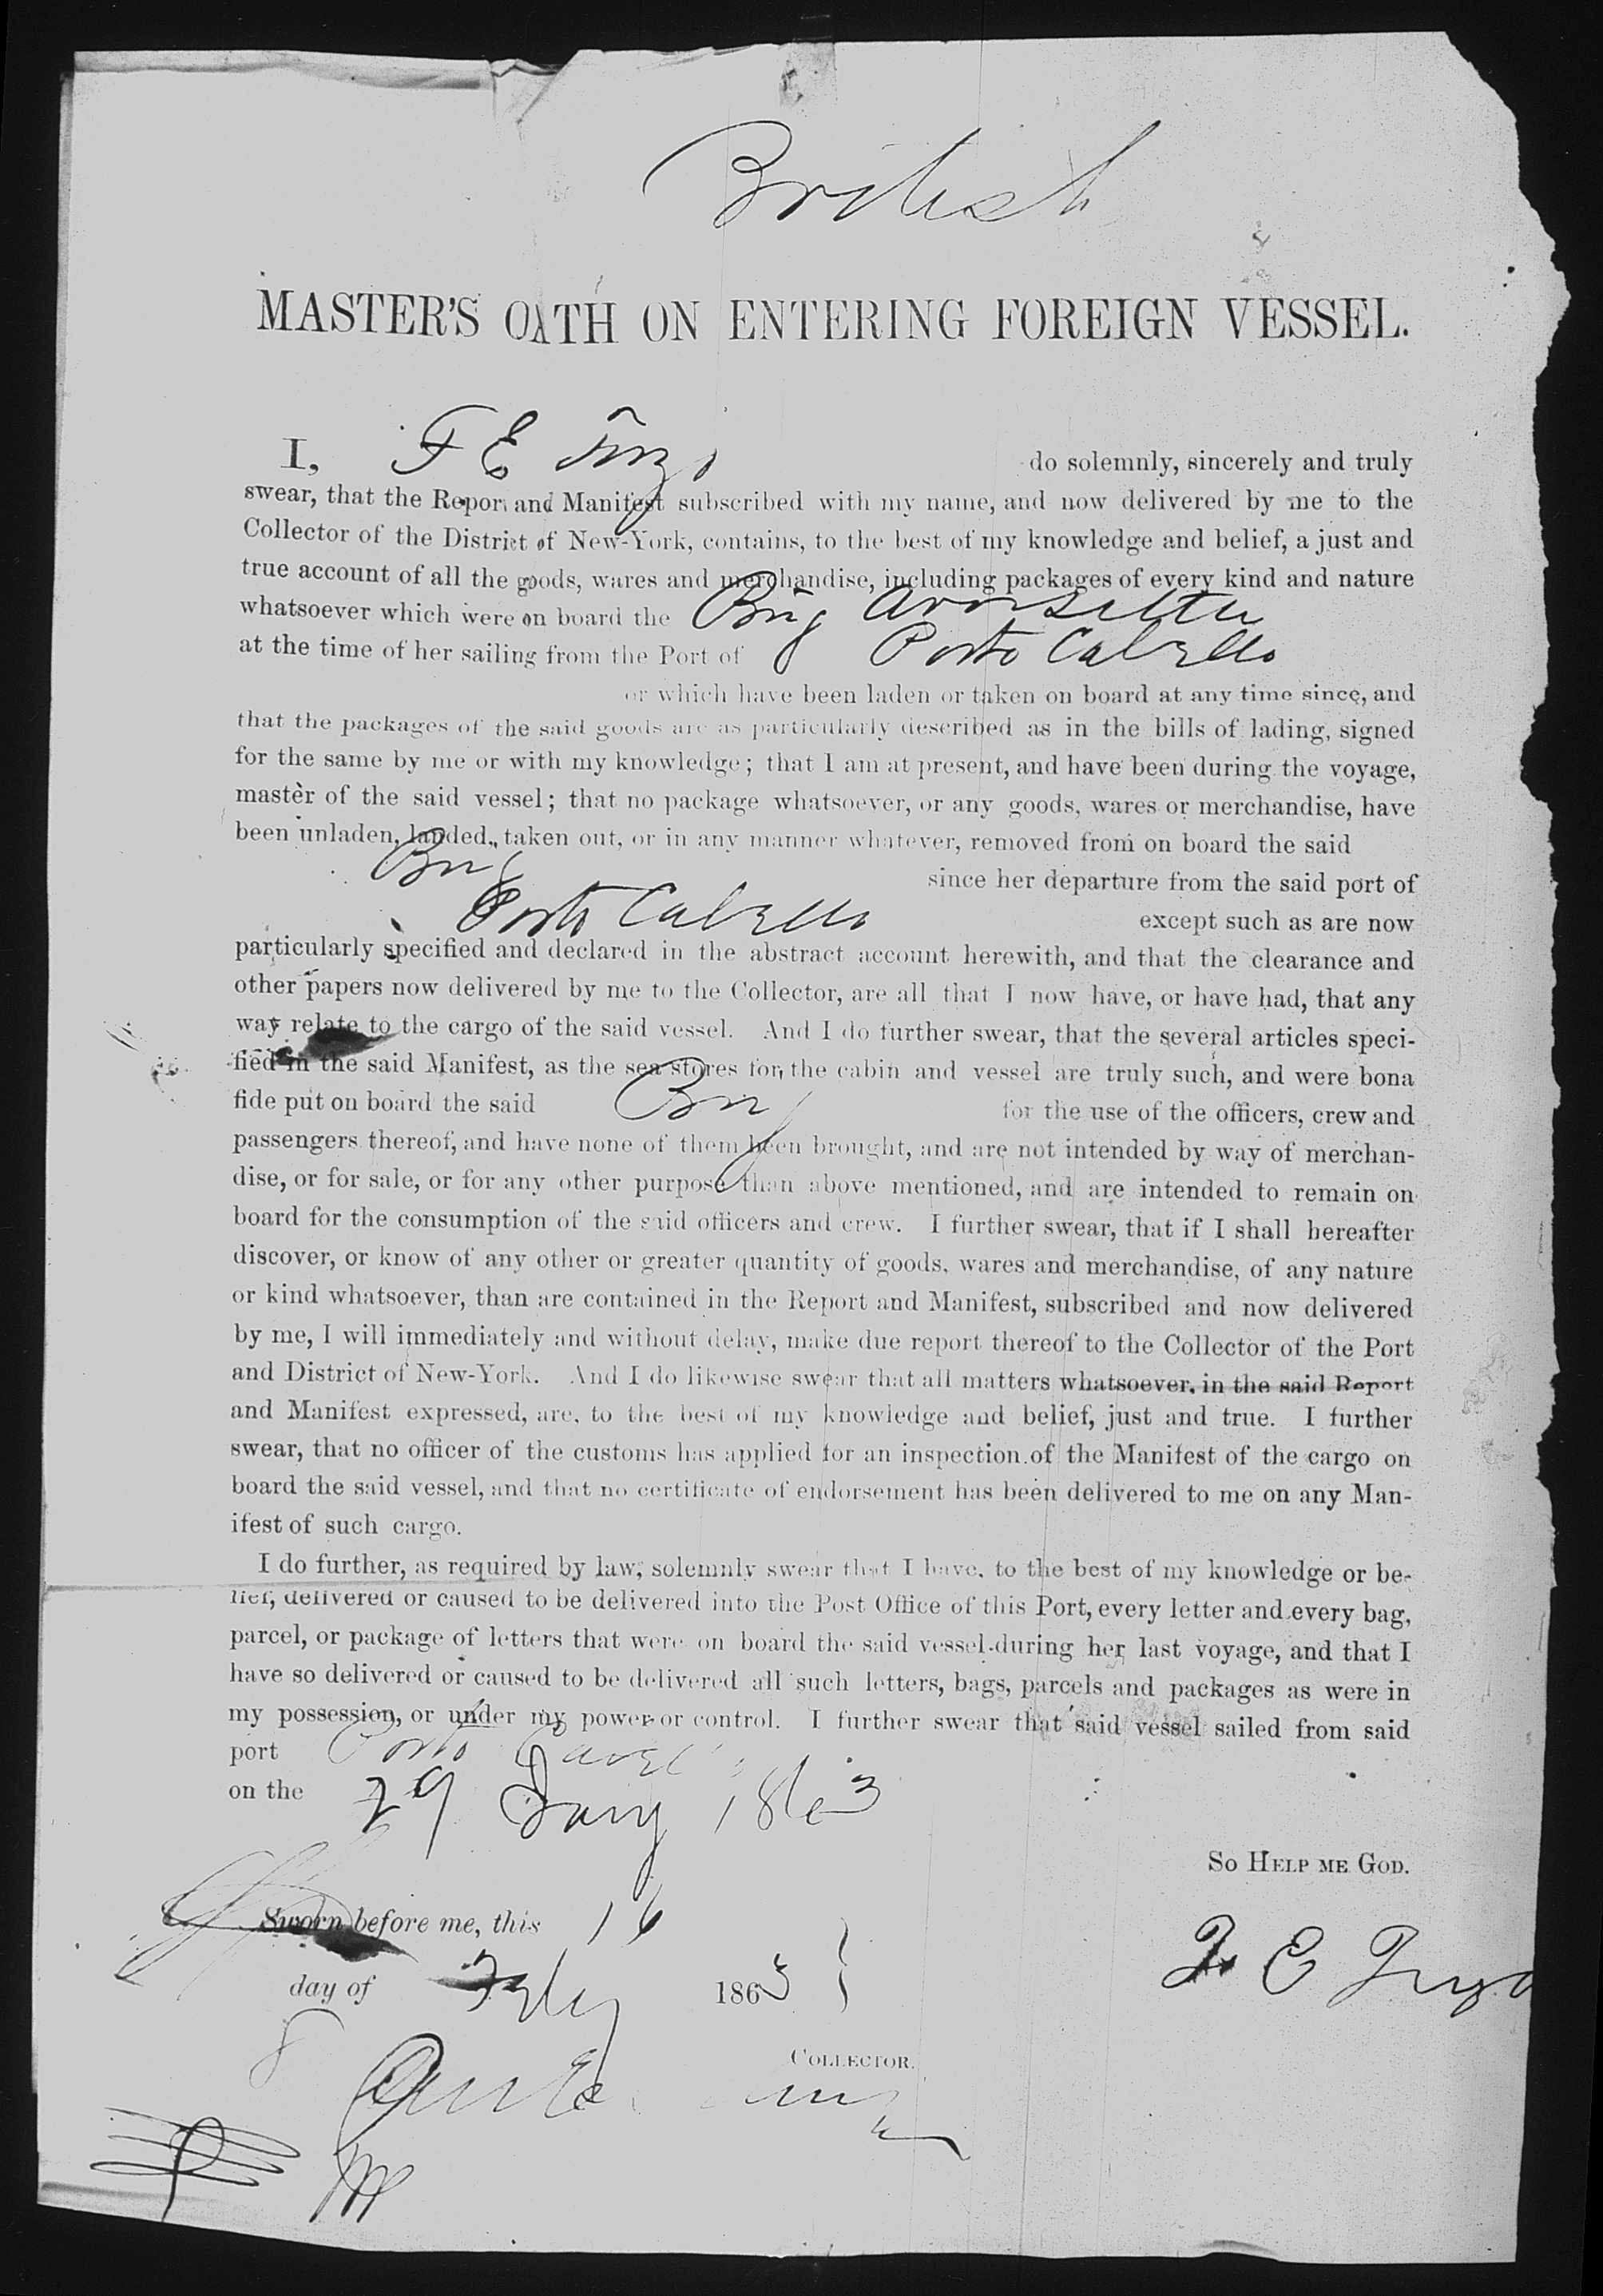 British
MASTER'S OATH ON ENTERING FOREIGN VESSEL.
I, F E do solemnly, sincerely and truly
swear, that the Report and Manifest subscribed with my name, and now delivered by me to the
Collector of the District of New-York, contains, to the best of my knowledge and belief, a just and
true account of all the goods, wares and merchandise, including packages of every kind and nature
whatsoever which were on board the Brig
at the time of her sailing from the Port of Porto Cabello
or which have been laden or taken on board at any time since, and
that the packages of the said goods are as particularly described as in the bills of lading, signed
for the same by me or with my knowledge; that I am at present, and have been during the voyage,
master of the said vessel; that no package whatsoever, or any goods, wares or merchandise, have
been unladen, landed, taken out, or in any manner whatever, removed from on board the said
Brig since her departure from the said port of
Porto Cabello except such as are now
particularly specified and declared in the abstract account herewith, and that the clearance and
other papers now delivered by me to the Collector, are all that I now have, or have had, that any
way relate to the cargo of the said vessel. And I do further swear, that the several articles speci-
fied in the said Manifest, as the sea stores for the cabin and vessel are truly such, and were bona
fide put on board the said Brig for the use of the officers, crew and
passengers thereof, and have none of them been brought, and are not intended by way of merchan-
dise, or for sale, or for any other purpose than above mentioned, and are intended to remain on
board for the consumption of the said officers and crew. I further swear, that if I shall hereafter
discover, or know of any other or greater quantity of goods, wares and merchandise, of any nature
or kind whatsoever, than are contained in the Report and Manifest, subscribed and now delivered
by me, I will immediately and without delay, make due report thereof to the Collector of the Port
and District of New-York. And I do likewise swear that all matters whatsoever, in the said Report
and Manifest expressed, are, to the best of my knowledge and belief, just and true. I further
swear, that no officer of the customs has applied for an inspection of the Manifest of the cargo on
board the said vessel, and that no certificate of endorsement has been delivered to me on any Man-
ifest of such cargo.
I do further, as required by law, solemnly swear that I have, to the best of my knowledge or be-
lief, delivered or caused to be delivered into the Post Office of this Port, every letter and every bag,
parcel, or package of letters that were on board the said vessel during her last voyage, and that I
have so delivered or caused to be delivered all such letters, bags, parcels and packages as were in
my possession, or under my power or control. I further swear that said vessel sailed from said
port Porto
on the 29 Jany 1863
So HELP ME GOD.
Sworn before me, this 16
day of Feby 1863
F E
COLLECTOR.